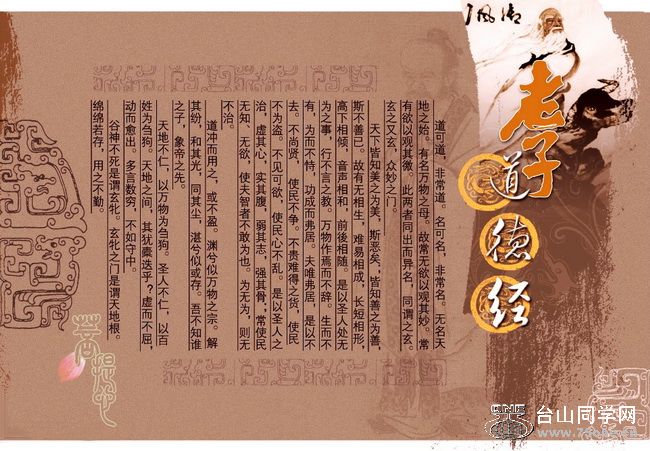 老子
道德经
道可道，非常道。名可名，非常名。无名天
地之始。有名万物之母。故常无欲以观其妙。常
有欲以观其徼。此两者同出而异名，同谓之玄。
玄之又玄，众妙之门。
天下皆知美之为美，斯恶矣，皆知善之为善，
斯不善已。故有无相生，难易相成，长短相形，
高下相倾，音声相和，前後相随。是以圣人处无
为之事，行不言之教。万物作焉而不辞。生而不
有，为而不恃，功成而弗居。夫唯弗居，是以不
去。不尚贤，使民不争。不贵难得之货，使民
不为盗。不见可欲，使民心不乱。是以圣人之
治，虚其心，实其腹，弱其志，强其骨，常使民
无知、无欲，使夫智者不敢为也。为无为，则无
不治。
道冲而用之，或不盈。渊兮似万物之宗。解
其纷，和其光，同其尘，湛兮似或存。吾不知谁
之子，象帝之先。
天地不仁，以万物为刍狗。圣人不仁，以百
姓为刍狗。天地之间，其犹橐迭乎？虚而不屈，
动而愈出。多言数穷，不如守中。
谷神不死是谓玄牝。玄牝之门是谓天地根。
绵绵若存，用之不勤。
台山同学网